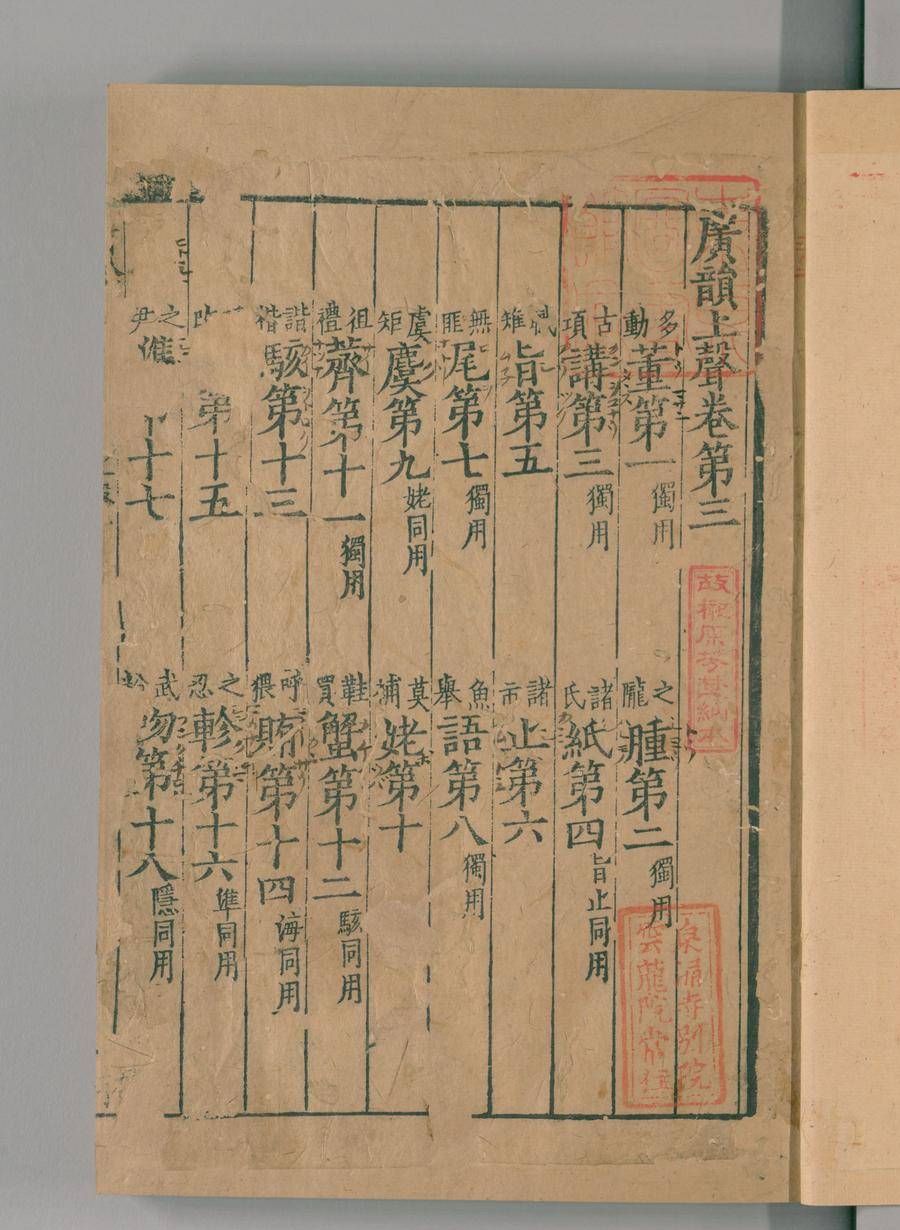 廣韻上聲卷第三
多動董第一獨用
之隴腫第二獨用
古項講第三獨用
諸氏紙第四旨止同用
雉旨第五
諸市止第六
無匪尾第七獨用
魚舉語第八獨用
虞矩麌第九姥同用
莫補姥第十
徂禮薺第十一獨用
鞋買蟹第十二駭同用
諧楷駭第十三
呼猥賄第十四海同用
第十五
之忍軫第十六準同用
之尹準十七
武吻第十八隱同用
泉涌寺別院
雲龍院常住